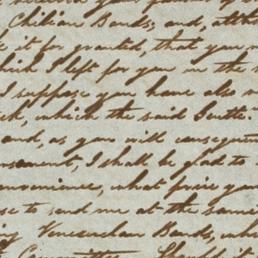 Chilian Bonds; and, altho
it for granted, that you
which I left for you in the
I suppose you have also
which the said Gentle
and, as you will consequen
I shall be glad to
convenience, what price you
to send me at the same
Venezuelan Bonds, whi
Committee. Should it